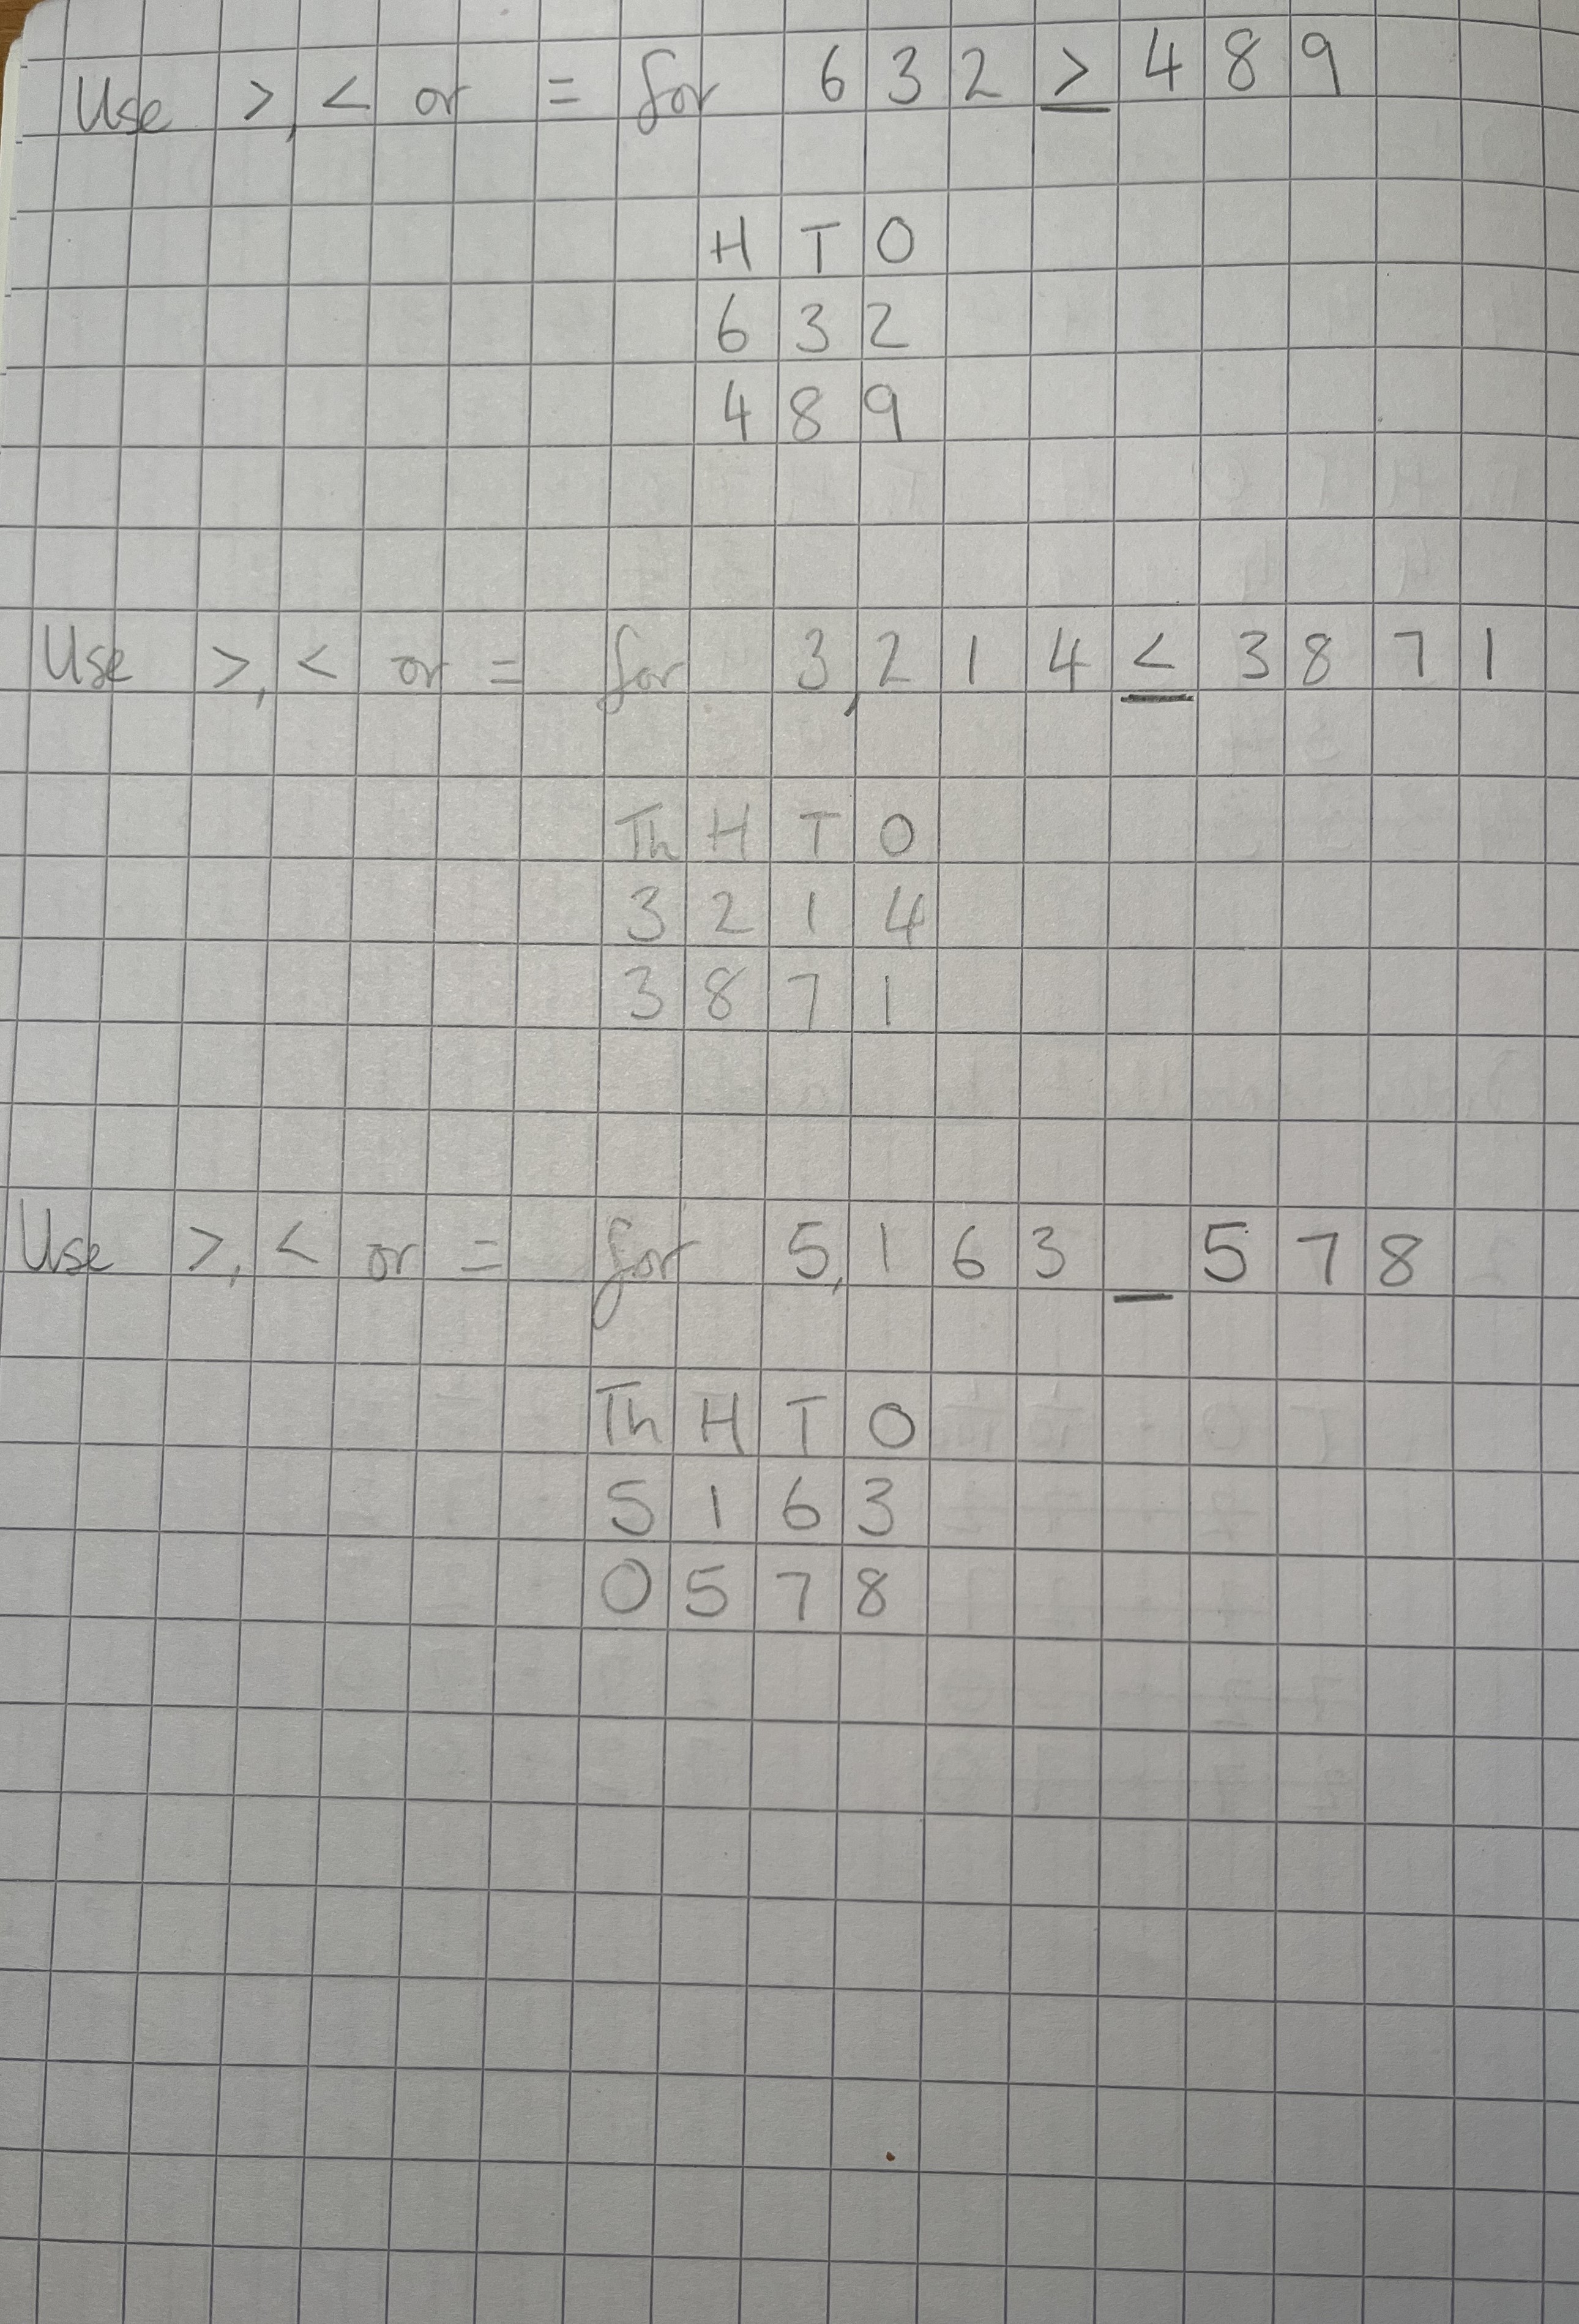 Use >, < or = for 632 > 489
H T O
6 3 2
4 8 9
Use >, < or = for 3,214 < 3871
Th H T O
3 2 1 4
3 8 7 1
Use >, < or = for 5,163 _ 578
Th H T O
5 1 6 3
0 5 7 8